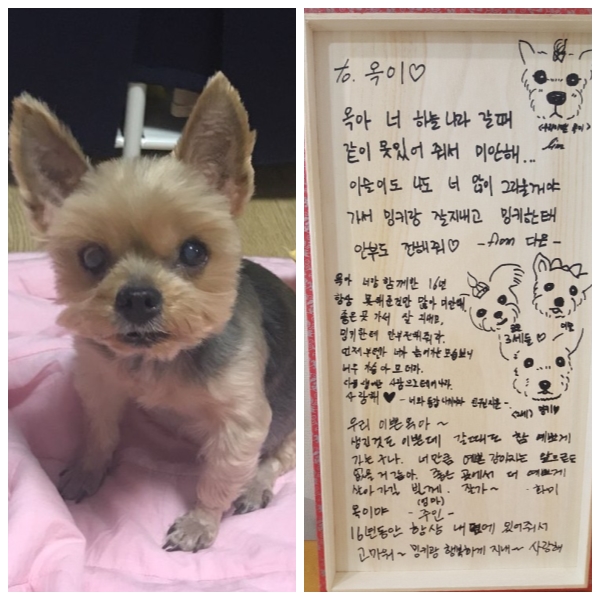 to. 옥이♡
옥아 너 하늘나라 갈때
같이 못있어 줘서 미안해...
아솔이도 나도 너 많이 그리울거야
가서 밍키랑 잘지내고 밍키한테
안부도 전해줘♡ -from 다운-
옥아 너랑 함께한 16년
항상 못해준것만 많아 미안해
좋은 곳 가서 잘 지내고,
밍키한테 안부전해줘라.
너무
사랑해♥
3세둥♡
밍키♡
우리 이쁜 옥아~
생긴것도 이쁜데 갈때도 참 예쁘게
가는구나. 너만큼 예쁜 강아지는 앞으로도
없을거 같아. 좋은 곳에서 더 예쁘게
살아가길 빌게. 잘가~
(엄마)
옥이야 -주인-
16년동안 항상 내 옆에 있어줘서
고마워~ 밍키랑 행복하게 지내~ 사랑해